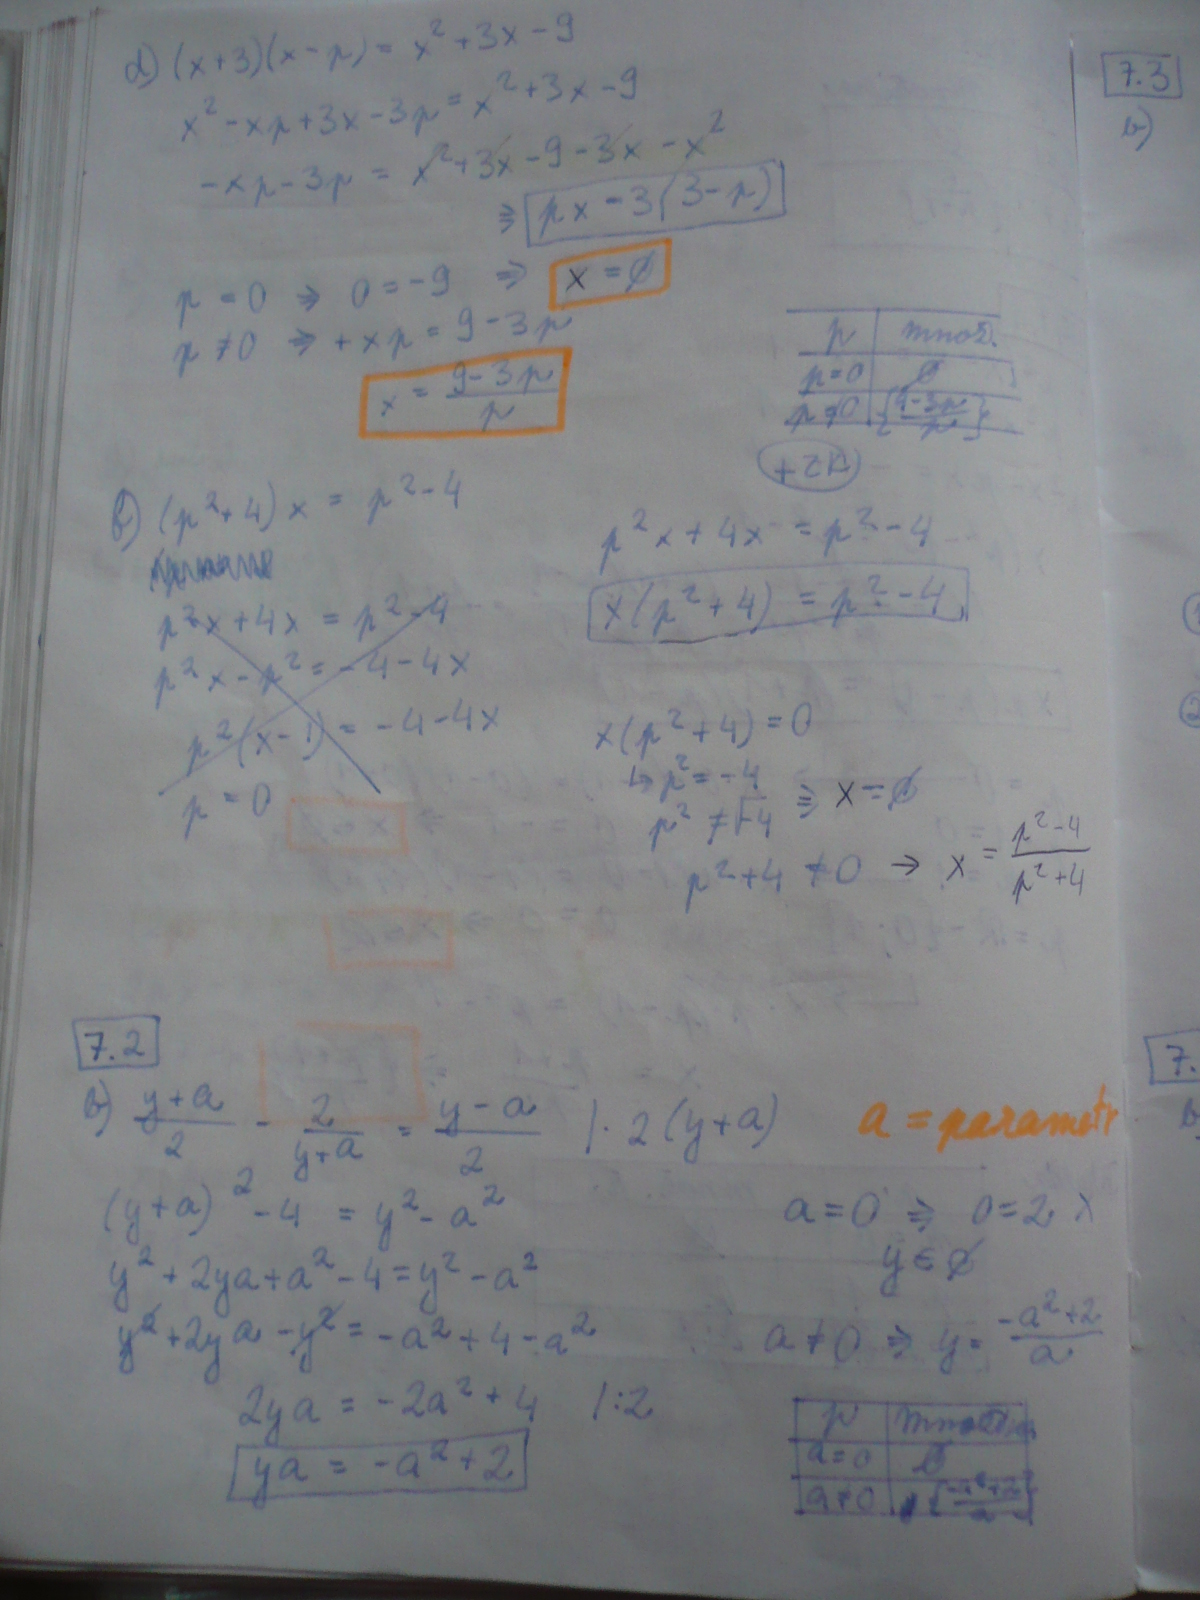 d) (x+3)(x-p) = x² + 3x - 9
x² - xp + 3x - 3p = x² + 3x - 9
-xp - 3p = x² + 3x - 9 - 3x - x²
⇒ px = 3(3-p)
p = 0 ⇒ 0 = -9 ⇒ x = ∅
p ≠ 0 ⇒ + xp = 9 - 3p
x = (9-3p)/p
p | množ.
p=0 | ∅
p≠0 | {(9-3p)/p}
b) (p²+4)x = p²-4
p²x + 4x = p² - 4
p²x - p² = -4 - 4x
p²(x-1) = -4-4x
p = 0
p²x + 4x = p² - 4
x(p²+4) = p² - 4
x(p²+4) = 0
↳ p² = -4 ⇒ x = ∅
p² ≠ √-4
p²+4 ≠ 0 → x = (p²-4)/(p²+4)
7.2
b) (y+a)/2 - 2/(y+a) = (y-a)/2 /· 2(y+a)
a = parametr
(y+a)² - 4 = y² - a²
y² + 2ya + a² - 4 = y² - a²
y² + 2ya - y² = -a² + 4 - a²
2ya = -2a² + 4 /:2
ya = -a² + 2
a = 0 ⇒ 0 = 2 x
y ∈ ∅
a ≠ 0 ⇒ y = (-a²+2)/a
p
a=0 | ∅
a≠0 | {(-a²+2)/a}
7.3
b)
7.
b